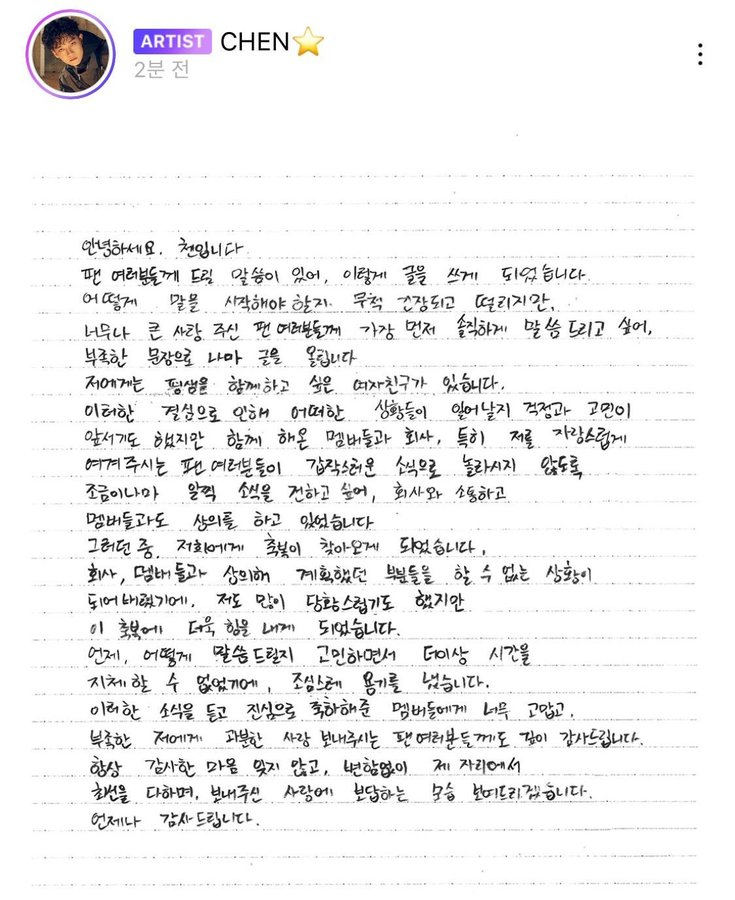 ARTIST CHEN⭐
2분 전
안녕하세요. 첸입니다
팬 여러분들께 드릴 말씀이 있어, 이렇게 글을 쓰게 되었습니다.
어떻게 말을 시작해야 할지 무척 긴장되고 떨리지만,
너무나 큰 사랑 주신 팬 여러분들께 가장 먼저 솔직하게 말씀드리고 싶어,
부족한 문장으로 나마 글을 올립니다
저에게는 평생을 함께하고 싶은 여자친구가 있습니다.
이러한 결심으로 인해 어떠한 상황들이 일어날지 걱정과 고민이
앞서기도 했지만 함께 해온 멤버들과 회사, 특히 저를 자랑스럽게
여겨주시는 팬 여러분들이 갑작스러운 소식으로 놀라시지 않도록
조금이나마 일찍 소식을 전하고 싶어, 회사와 소통하고
멤버들과도 상의를 하고 있었습니다
그러던 중, 저희에게 축복이 찾아오게 되었습니다.
회사, 멤버들과 상의해 계획했던 부분들을 할 수 없는 상황이
되어버렸기에, 저도 많이 당황스럽기도 했지만
이 축복에 더욱 힘을 내게 되었습니다.
언제, 어떻게 말씀드릴지 고민하면서 더이상 시간을
지체할 수 없었기에, 조심스레 용기를 냈습니다.
이러한 소식을 듣고 진심으로 축하해준 멤버들에게 너무 고맙고,
부족한 저에게 과분한 사랑 보내주시는 팬여러분들께도 깊이 감사드립니다.
항상 감사한 마음 잊지 않고, 변함없이 제 자리에서
최선을 다하며, 보내주신 사랑에 보답하는 모습 보여드리겠습니다.
언제나 감사드립니다.